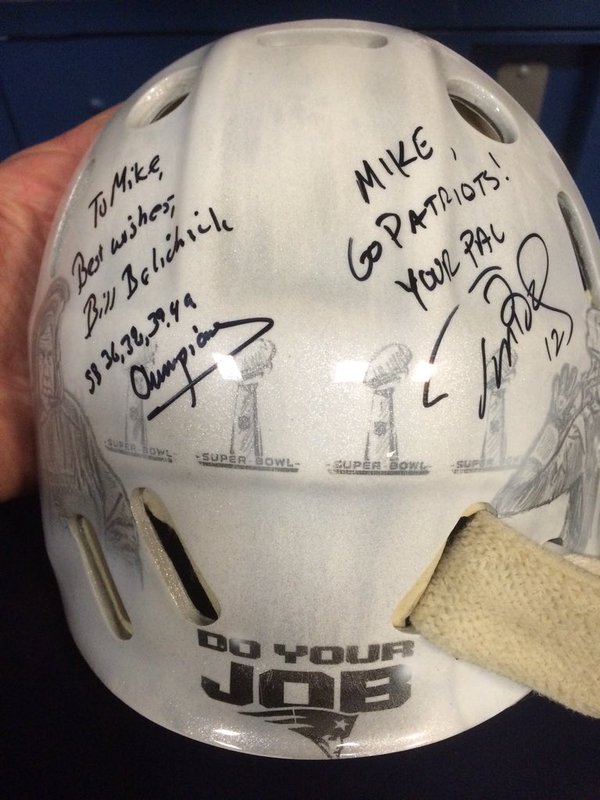 To Mike,
Best wishes,
Bill Belichick
SB 36, 38, 39, 49
Champions
MIKE,
GO PATRIOTS!
YOUR PAL
12
SUPER BOWL
-SUPER BOWL-
-SUPER BOWL-
SUPER BOWL
DO YOUR
JOB